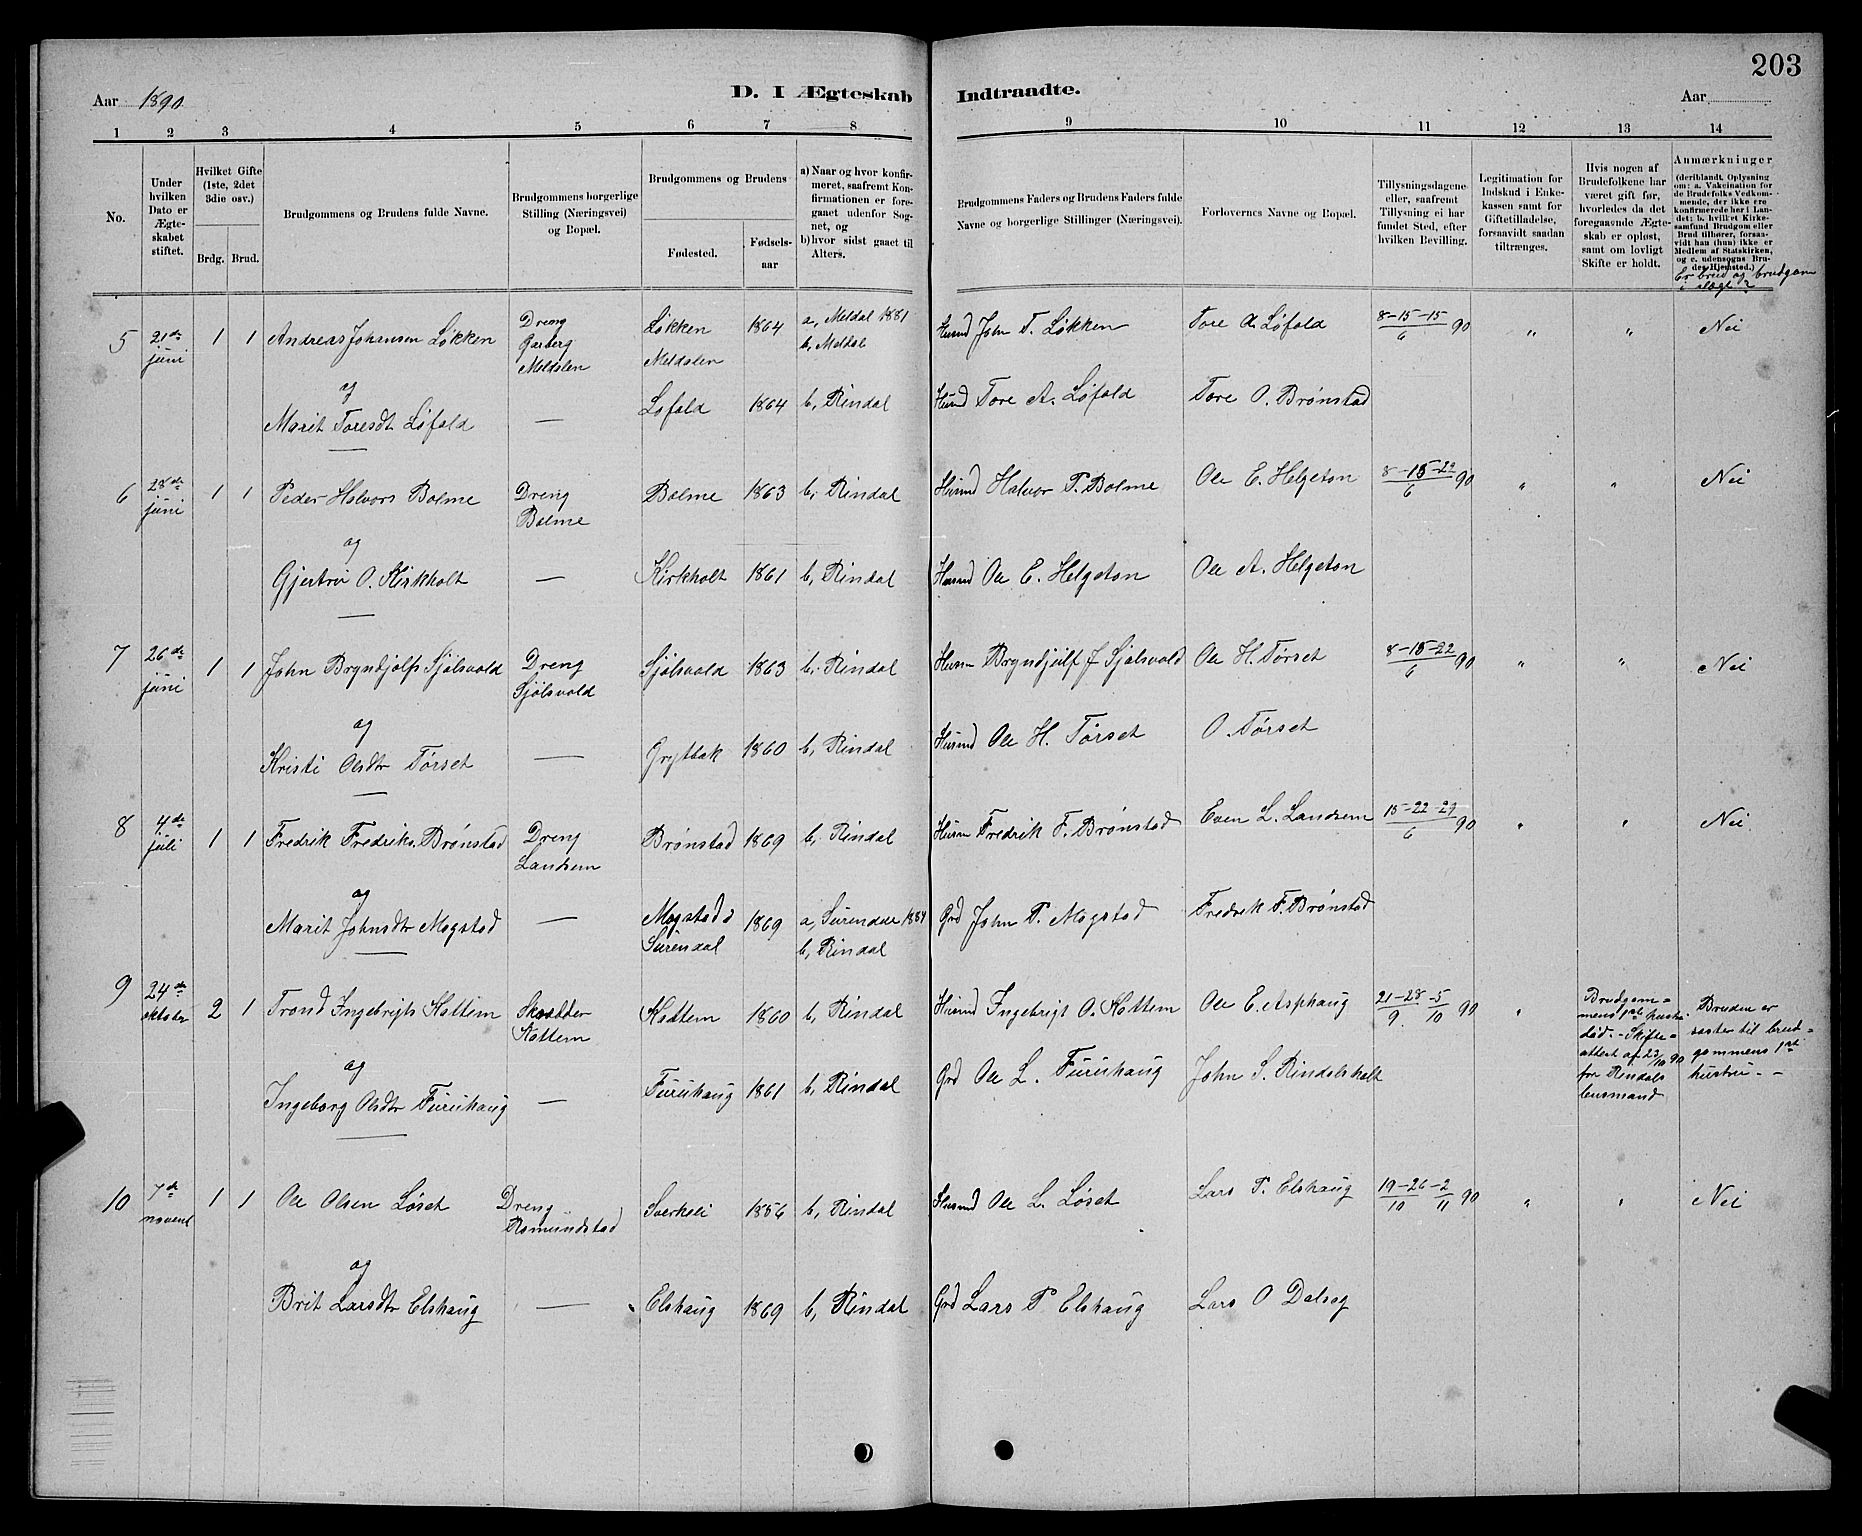 203
Aar 1890.
D. I Ægteskab Indtraadte.
Aar
1 2 3 4 5 6 7 8 9 10 11 12 13 14
No.
Under hvilken Dato er Ægteskabet stiftet.
Hvilket Gifte (1ste, 2det 3die osv.)
Brdg. Brud.
Brudgommens og Brudens fulde Navne.
Brudgommens borgerlige Stilling (Næringsvei) og Bopæl.
Brudgommens og Brudens
Fødested.
Fødsels-aar
a) Naar og hvor konfirmeret, saafremt Konfirmationen er foreganet udenfor Sognet, og
b) hvor sidst gaaet til Alters.
Brudgommens Faders og Brudens Faders fulde Navne og borgerlige Stillinger (Næringsvei).
Forlovernes Navne og Bopæl.
Tillysningsdagene eller, saafremt Tillysning ei har fundet Sted, efter hvilken Bevilling.
Legitimation for Indskud i Enkekassen samt for Giftetilladelse, forsaavidt saadan tiltrænges.
Hvis nogen af Brudefolkene har været gift før, hvorledes da det foregaaende Ægteskab er opløst, samt om lovligt Skifte er holdt.
Anmærkninger
(deriblandt Oplysning om: a. Vakcination for de Brudefolks Vedkommende, der ikke ere konfirmerede her i Landet; b. hvilket Kirkesamfund Brudgom eller Brud tilhører, forsaavidt han (hun) ikke er Medlem af Statskirken, og c. udensogns Brudes Hjemsted.)
Er brud og brudgom i slægt?
5 21de juni 1 1 Andreas Johansen Løkken Dreng Garberg Meldalen Løkken Meldalen 1864 a, Meldal 1881 b, Meldal Husmd John T. Løkken Tore A. Løfald 8-15-15/6 90 " " Nei
og
Marit Toresdt Løfald — Løfald 1864 b, Rindal Husmd Tore A. Løfald Tore O. Brønstad
6 28de juni 1 1 Peder Halvors Bolme Dreng Bolme Bolme 1863 b, Rindal Husmd Halvor P. Bolme Ole E. Helgeton 8-15-22/6 90 " " Nei
og
Gjertrø O. Kirkholt — Kirkholt 1861 b, Rindal Husmd Ole E. Helgeton Ole A. Helgeton
7 26de juni 1 1 John Bryndjolfs Sjølsvold Dreng Sjølsvold Sjølsvold 1863 b, Rindal Husm Bryndjulf J Sjølsvold Ole H. Tørset 8-15-22/6 90 " " Nei
og
Kristi Olsdtr Tørset — Gryttbak 1860 b, Rindal Husmd Ole H. Tørset O. Tørset
8 4de juli 1 1 Fredrik Fredriks. Brønstad Dreng Landsem Brønstad 1869 b, Rindal Husm Fredrik F. Brønstad Even L. Landsem 15-22-29/6 90 " " Nei
og
Marit Johnsdtr Mogstad — Mogstad i Surendal 1869 a, Surendal 1884 b, Rindal Grd John P. Mogstad Fredrik F. Brønstad
9 24de oktober 2 1 Trond Ingebrigts Kattem Skrædder Kattem Kattem 1860 b, Rindal Husmd Ingebrigt O. Kattem Ole E. Asphaug 21-28/9 -5/10 90 " Brudgommens 1ste hustru død. - Skifteattest af 23/10 90 fra Rindals lensmand Bruden er søster til brudgommens 1ste hustru. -
og
Ingeborg Olsdtr Furuhaug — Furuhaug 1861 b, Rindal Grd Ole L. Furuhaug John S. Rindalsholt
10 7de novembr 1 1 Ole Olsen Løset Dreng Romundstad Sverkeli 1856 b, Rindal Husmd Ole L. Løset Lars P. Elshaug 19-26/10 -2/11 90 " " Nei
og
Brit Larsdtr Elshaug — Elshaug 1869 b, Rindal Grd Lars P Elshaug Lars O Dalseg